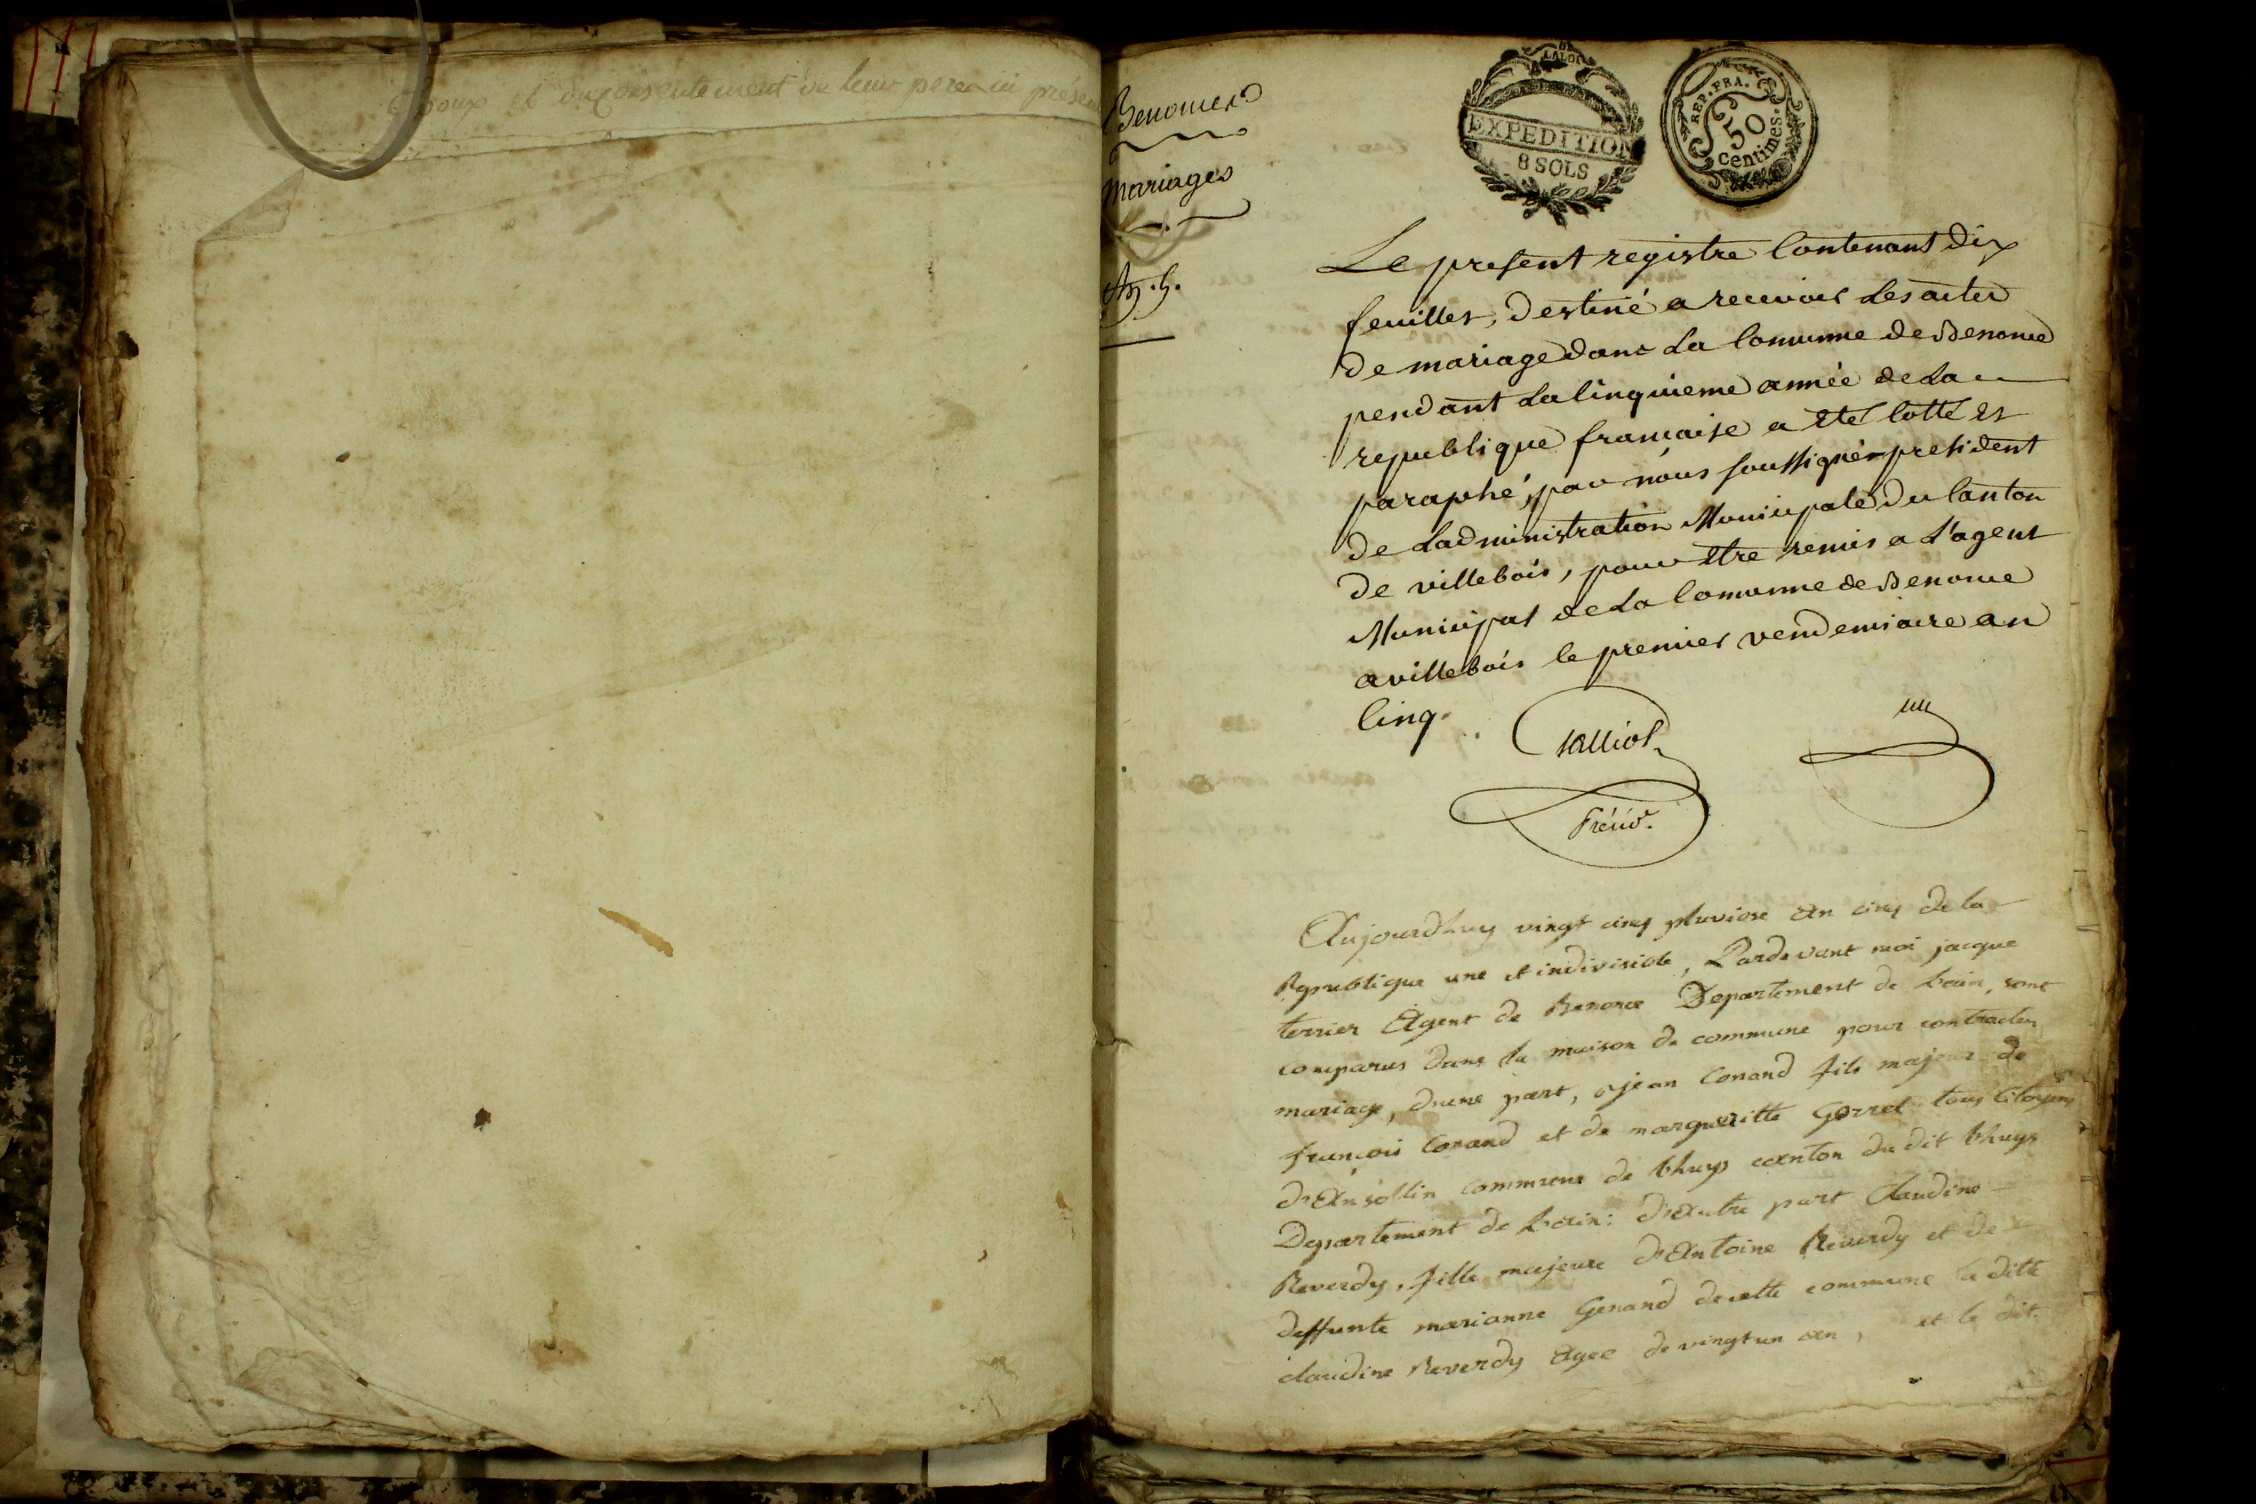 Epoux et du consentement de leur pere ici présent
Benonces
Mariages
An. 5.
DE
LA LOI
EXPEDITION
8 SOLS
REP. FRA.
50
centimes.
Le present registre Contenant dix
feuilles, destiné a recevoir Les actes
de mariage dans La Commune de Benonce
pendant La Cinquieme année de La
republique francaise a eté Cotté et
paraphé, par nous soussigné president
de Ladministration Municipale du Canton
de villebois, pour etre remis a L'agent
Municipal de La Commune de Benonce
a villebois le premier vendemiaire an
Cinq.
Aujourdhuy vingt cinq pluviose An cinq de la
Republique une et indivisible, Pardevant moi jacque
terrier Agent de Benonce Departement de Lain, sont
comparus dans la maison de commune pour contracter
mariage, d'une part, jean Conand fils majeur de
françois Conand et de margueritte Gorret tous Citoyens
d'Ansollin commune de bhuys canton du dit bhuys
Departement de Lain: d'Autre part Claudine
Reverdy, fille majeure d'Antoine Reverdy et de
deffunte marianne Genand de cette commune la ditte
claudine Reverdy Agee de vingt un an, et le dit